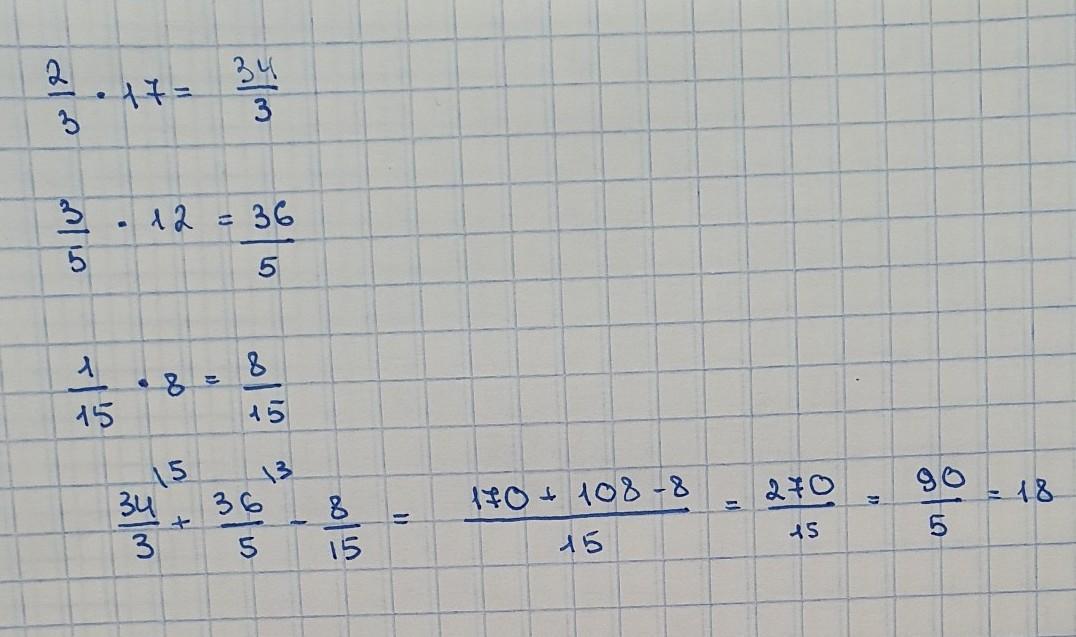 2/3 · 17 = 34/3
3/5 · 12 = 36/5
1/15 · 8 = 8/15
34/3 \5 + 36/5 \3 - 8/15 = (170 + 108 - 8)/15 = 270/15 = 90/5 = 18